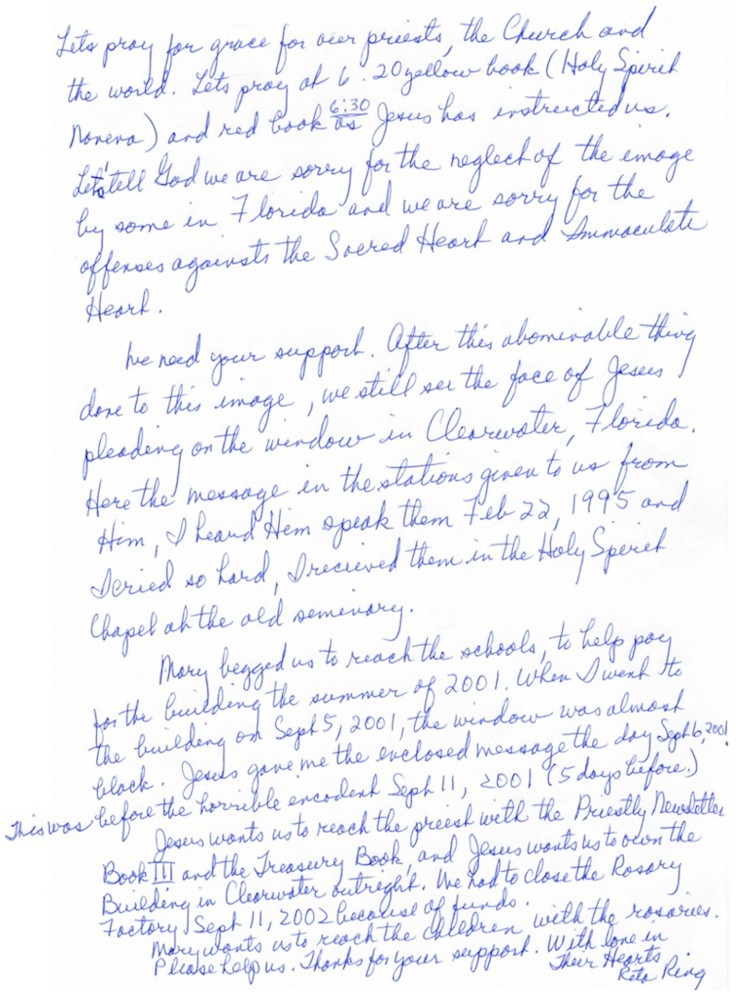 Lets pray for grace for our priests, the Church and
the world. Lets pray at 6:20 yellow book (Holy Spirit
Novena) and red book 6:30 as Jesus has instructed us.
Let's tell God we are sorry for the neglect of the image
by some in Florida and we are sorry for the
offenses against the Sacred Heart and Immaculate
Heart.
We need your support. After this abominable thing
done to this image, we still see the face of Jesus
pleading on the window in Clearwater, Florida.
Here the message in the stations given to us from
Him, I heard Him speak them Feb 22, 1995 and
I cried so hard, I recieved them in the Holy Spirit
Chapel at the old seminary.
Mary begged us to reach the schools, to help pay
for the building the summer of 2001. When I went to
the building on Sept 5, 2001, the window was almost
black. Jesus gave me the enclosed message the day Sept 6, 2001
This was before the horrible encodent Sept 11, 2001 (5 days before.)
Jesus wants us to reach the priest with the Priestly Newsletter
Book III and the Treasury Book, and Jesus wants us to own the
Building in Clearwater outright. We had to close the Rosary
Factory Sept 11, 2002 because of funds.
Mary wants us to reach the children with the rosaries.
Please help us. Thanks for your support. With love in
Their Hearts
Rita Ring